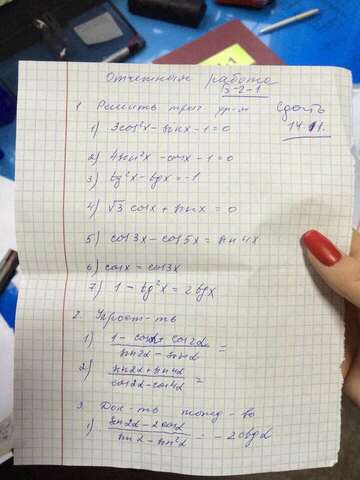 Отчетная работа
5-2-1
1 Решить триг ур-я сдать
1) 3cos²x - sinx - 1 = 0 14.11.
2) 4sin²x - cosx - 1 = 0
3) tg²x - tgx = -1
4) √3 cosx + sinx = 0
5) cos3x - cos5x = sin4x
6) cosx = cos3x
7) 1 - tg²x = 2tgx
2. Упрост-ть
1) (1 - cosα + cos2α)/(sin2α - sinα) =
2) (sin2α + sin4α)/(cos2α - cos4α) =
3 Док-ть тожд-во
1) (sin2α - 2cosα)/(sinα - sin²α) = -2ctgα